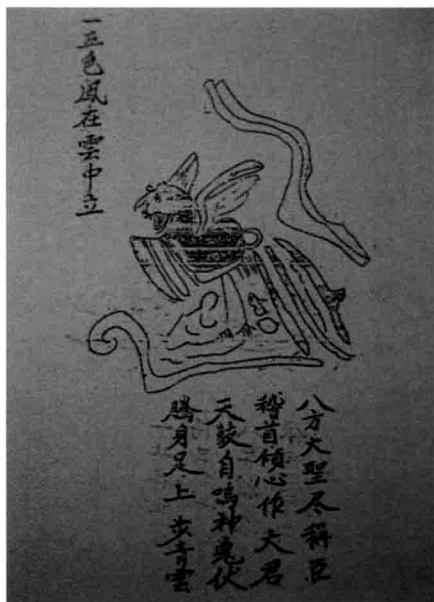 一五色鳳在雲中立
八方大聖尽稱臣
稽首傾心作大君
天鼓自鳴神鬼伏
騰身足上步青雲